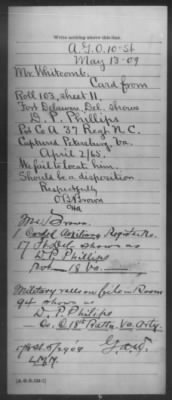 Write nothing above this line.
A.G.O. 10-St
May 13-09
Mr. Whitcomb.
Card from
Roll 103, sheet 11,
Fort Delaware, Del. shows
D. P. Phillips
Pvt Co A 37 Regt N. C.
Captured Petersburg, Va.
April 2/65.
We fail to locate him.
Should be a disposition
Respectfully
Brown
Mr. Brown.
shows as
D. P. Phillips
18 Va
Military rolls on file in Room
94 shows
D. P. Philips
Co. C 18" Battn. Va. Arty.